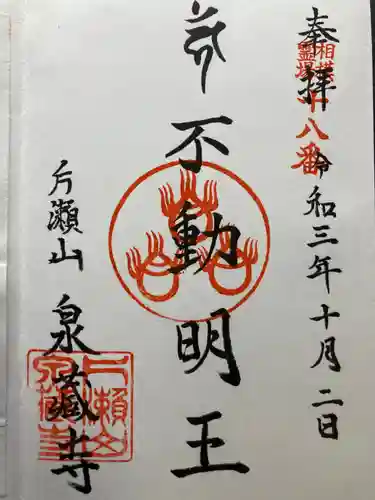 奉拝
相模霊場
十八番
令和三年十月二日
不動明王
片瀬山
泉蔵寺
片瀬山泉蔵寺